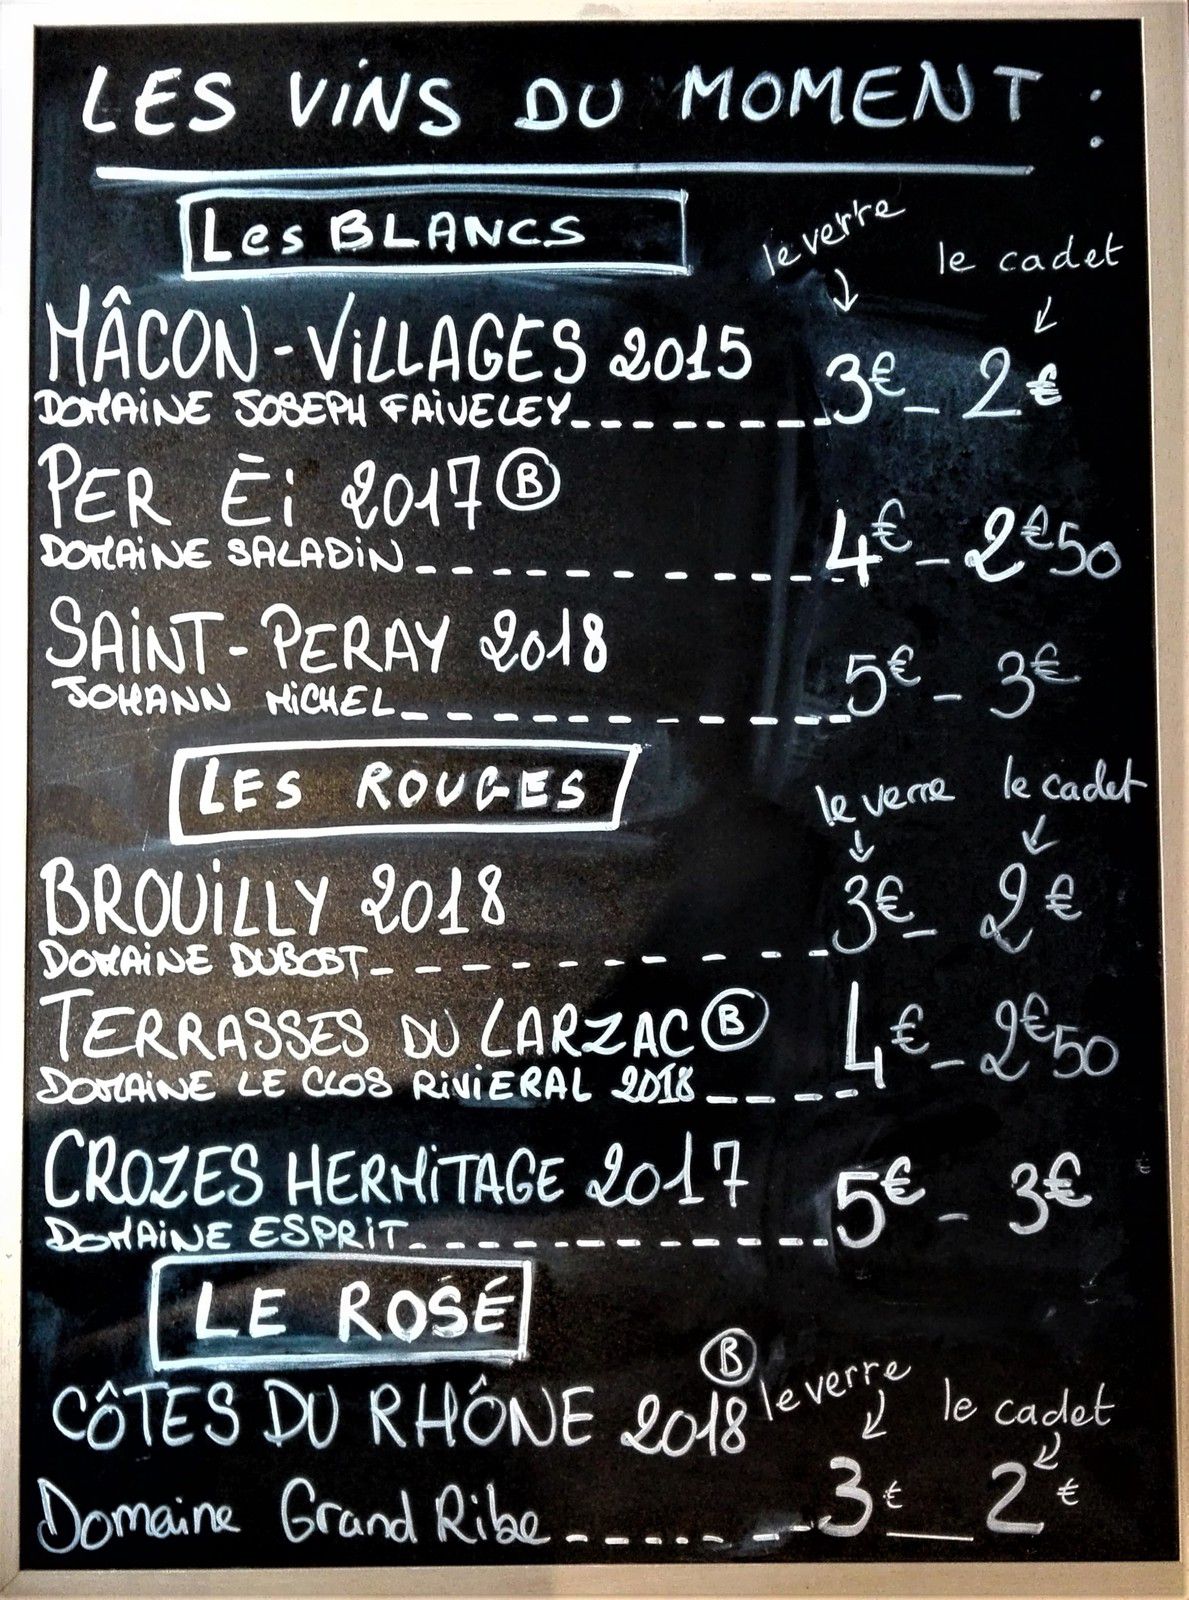 LES ViNS DU MOMENT :
Les BLANCS
le verre le cadet
MÂCON-ViLLAGES 2015
DOMAiNE JOSEPH FAiVELEY 3€ - 2€
PER Èi 2017 Ⓑ
DOMAiNE SALADiN 4€ - 2€50
SAiNT-PERAY 2018
JOHANN MiCHEL 5€ - 3€
LES ROUGES
le verre le cadet
BROUiLLY 2018
DOMAiNE DUBOST 3€ - 2€
TERRASSES DU LARZAC Ⓑ
DOMAiNE LE CLOS RiViERAL 2018 4€ - 2€50
CROZES HERMiTAGE 2017
DOMAiNE ESPRiT 5€ - 3€
LE ROSÉ
CÔTES DU RHÔNE 2018 Ⓑ le verre le cadet
Domaine Grand Ribe 3€ - 2€